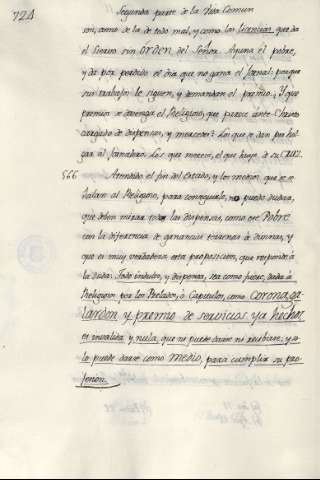 724
Segunda parte de la Vida Comun
mi, amo de la de todo mal, y como las licencias que da
el Siervo sin ORDEN del Señor. Ayuna el pobre,
y da por perdido el dia que no gana el Jornal: porque
sin trabajo le siguen, y demandan el premio. Y que
premio se devenga el Religioso, que parece ante Christo
cargado de dispensas, y mercedes? Los que se dan por hol-
gar al Jornalero. Los que merece, el que huye à su CRUZ.
566 Atendido el fin del estado, y los medios que se se-
ñalan al Religioso, para conseguirlo, no puede dudarse,
que deben mirar todas las dispensas, como este Pobre
con la diferencia de ganancias terrenas à divinas, y
que es muy verdadera esta proposicion, que responde à
la duda: Todo indulto, y dispensa, sea como fuere, dada à
Religiosos por los Prelados, ò Capitulos, como Corona, ga-
lardon, y premio de servicios ya hechos
es invalida y nula, que no puede darse ni recibirse; y so-
lo puede darse como medio, para cumplir su pro-
fesion.